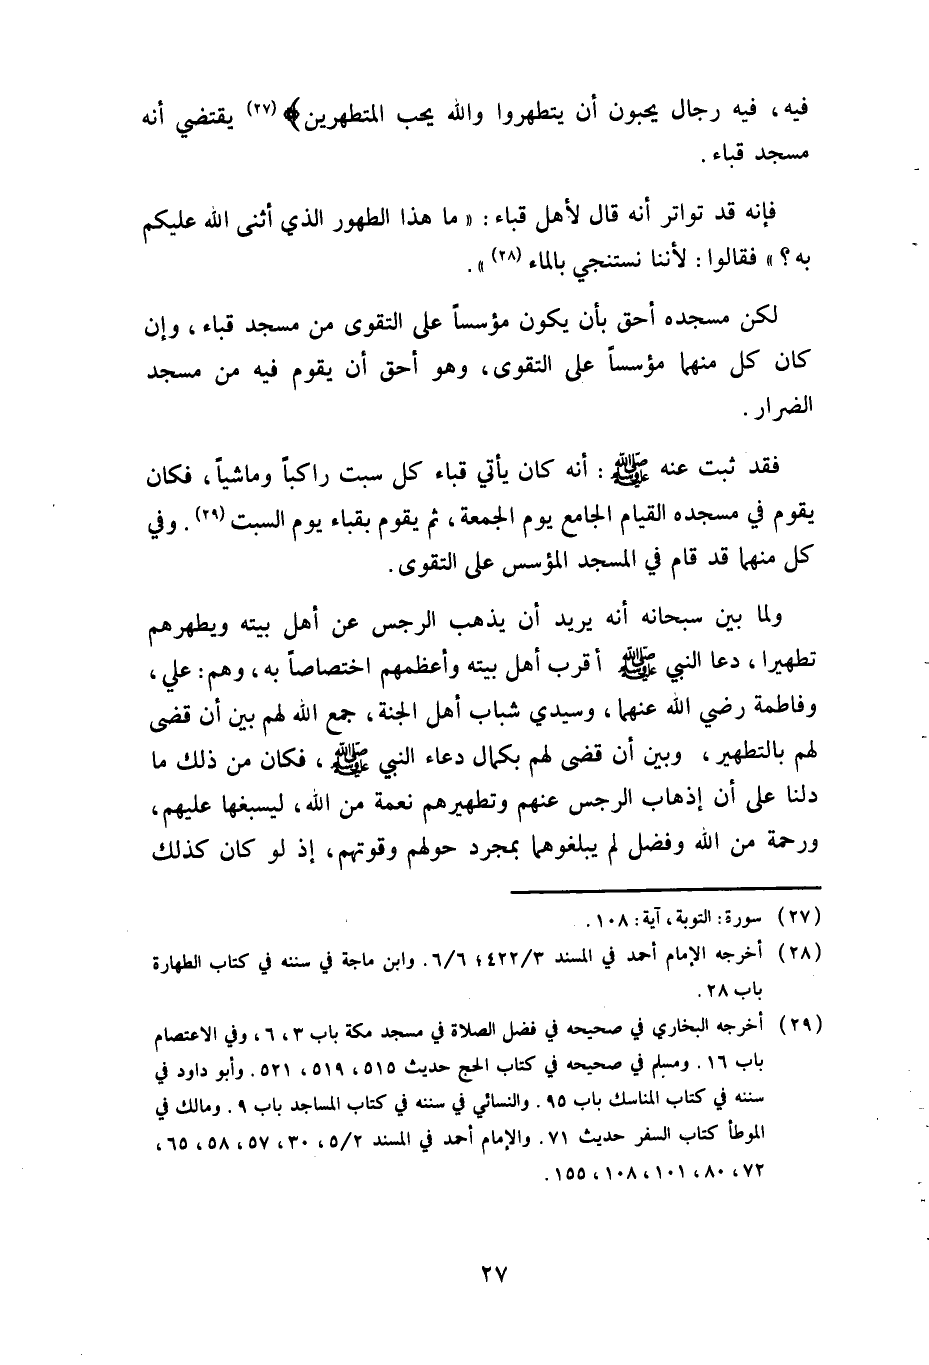 فيه، فيه رجال يحبون أن يتطهروا والله يحب المتطهرين﴾ (٢٧) يقتضي أنه
مسجد قباء .
فإنه قد تواتر أنه قال لأهل قباء : « ما هذا الطهور الذي أثنى الله عليكم
به؟» فقالوا : لأننا نستنجي بالماء (٢٨) ».
لكن مسجده أحق بأن يكون مؤسساً على التقوى من مسجد قباء ، وإن
كان كل منهما مؤسساً على التقوى، وهو أحق أن يقوم فيه من مسجد
الضرار .
فقد ثبت عنه ﷺ : أنه كان يأتي قباء كل سبت راكباً وماشياً، فكان
يقوم في مسجده القيام الجامع يوم الجمعة، ثم يقوم بقباء يوم السبت (٢٩) . وفي
كل منهما قد قام في المسجد المؤسس على التقوى.
ولما بين سبحانه أنه يريد أن يذهب الرجس عن أهل بيته ويطهرهم
تطهيرا، دعا النبي ﷺ أقرب أهل بيته وأعظمهم اختصاصاً به، وهم: علي،
وفاطمة رضي الله عنهما، وسيدي شباب أهل الجنة، جمع الله لهم بين أن قضى
لهم بالتطهير، وبين أن قضى لهم بكمال دعاء النبي ﷺ ، فكان من ذلك ما
دلنا على أن إذهاب الرجس عنهم وتطهيرهم نعمة من الله، ليسبغها عليهم،
ورحمة من الله وفضل لم يبلغوهما بمجرد حولهم وقوتهم، إذ لو كان كذلك
(٢٧) سورة: التوبة، آية: ١٠٨ .
(٢٨) أخرجه الإمام أحمد في المسند ٤٢٢/٣؛ ٦/٦. وابن ماجة في سننه في كتاب الطهارة
باب ٢٨ .
(٢٩) أخرجه البخاري في صحيحه في فضل الصلاة في مسجد مكة باب ٣، ٦، وفي الاعتصام
باب ١٦. ومسلم في صحيحه في كتاب الحج حديث ٥١٥، ٥١٩، ٥٢١. وأبو داود في
سننه في كتاب المناسك باب ٩٥. والنسائي في سننه في كتاب المساجد باب ٩. ومالك في
الموطأ كتاب السفر حديث ٧١. والإمام أحمد في المسند ٥/٢، ٣٠، ٥٧، ٥٨، ٦٥،
٧٢، ٨٠، ١٠١، ١٠٨، ١٥٥ .
٢٧